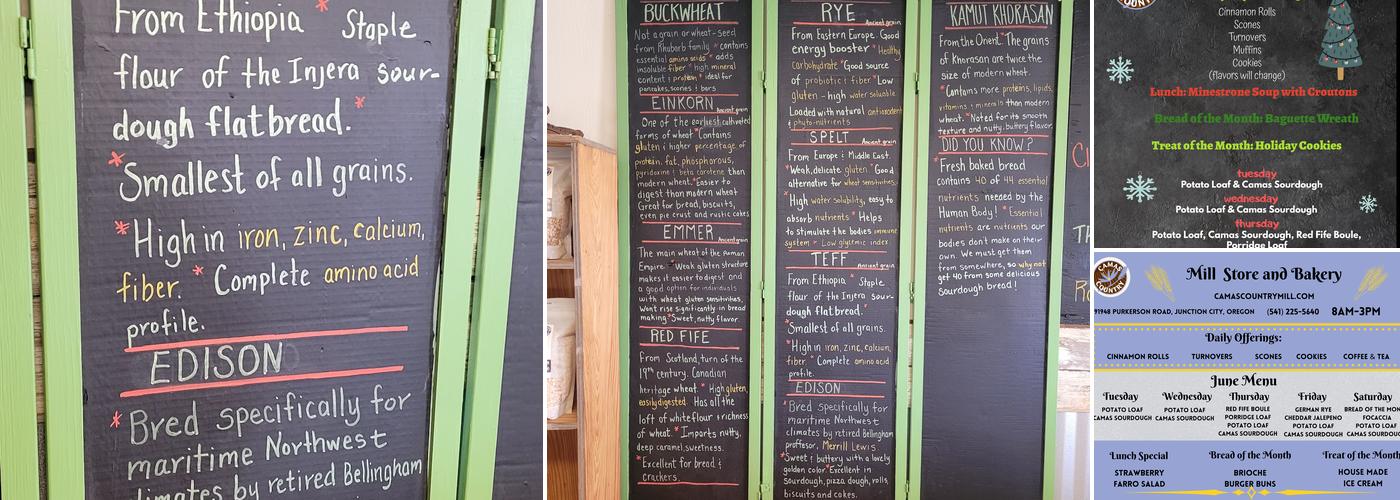 From Ethiopia * Staple
flour of the Injera sour-
dough flatbread. *
* Smallest of all grains.
* High in iron, zinc, calcium,
fiber. * Complete amino acid
profile.
EDISON
* Bred specifically for
maritime Northwest
climates by retired Bellingham
BUCKWHEAT
Not a grain or wheat-seed
from Rhubarb family * contains
essential amino acids * adds
insoluble fiber * high mineral
content & protein * ideal for
pancakes, scones & bars
EINKORN Ancient grain
One of the earliest cultivated
forms of wheat * Contains
gluten & higher percentage of
protein, fat, phosphorous,
pyridoxine & beta carotene than
modern wheat. * Easier to
digest than modern wheat
Great for bread, biscuits,
even pie crust and rustic cakes
EMMER Ancient grain
The main wheat of the Roman
Empire. * Weak gluten structure
makes it easier to digest and
a good option for individuals
with wheat gluten sensitivities.
Wont rise significantly in bread
making. * Sweet, nutty flavor.
RED FIFE
From Scotland, turn of the
19th century. Canadian
heritage wheat. * High gluten,
easily digested. Has all the
loft of white flour & richness
of wheat. * Imparts nutty,
deep caramel, sweetness.
* Excellent for bread &
crackers.
RYE
Ancient grain
From Eastern Europe. Good
energy booster * Healthy
carbohydrate * Good source
of probiotic & fiber * Low
gluten - high water soluble
Loaded with natural antioxidant
& phyto-nutrients
SPELT
Ancient grain
From Europe & Middle East.
* Weak, delicate gluten * Good
alternative for wheat sensitivities.
* High water solubility, easy to
absorb nutrients * Helps
to stimulate the bodies immune
system * Low glycemic index
TEFF
Ancient grain
From Ethiopia * Staple
flour of the Injera sour-
dough flatbread. *
* Smallest of all grains.
* High in iron, zinc, calcium,
fiber. * Complete amino acid
profile.
EDISON
* Bred specifically for
maritime Northwest
climates by retired Bellingham
professor, Merrill Lewis.
* Sweet & buttery with a lovely
golden color * Excellent in
sourdough, pizza dough, rolls,
biscuits and cakes.
KAMUT KHORASAN
From the Orient. * The grains
of Khorasan are twice the
size of modern wheat.
* Contains more proteins, lipids,
vitamins & minerals than modern
wheat. * Noted for its smooth
texture and nutty, buttery flavor.
DID YOU KNOW?
* Fresh baked bread
contains 40 of 44 essential
nutrients needed by the
Human Body! * Essential
nutrients are nutrients our
bodies don't make on their
own. We must get them
from somewhere, so why not
get 40 from some delicious
sourdough bread!
Cinnamon Rolls
Scones
Turnovers
Muffins
Cookies
(flavors will change)
Lunch: Minestrone Soup with Croutons
Bread of the Month: Baguette Wreath
Treat of the Month: Holiday Cookies
tuesday
Potato Loaf & Camas Sourdough
wednesday
Potato Loaf & Camas Sourdough
thursday
Potato Loaf, Camas Sourdough, Red Fife Boule,
Porridge Loaf
CAMAS COUNTRY
Mill Store and Bakery
CAMASCOUNTRYMILL.COM
91948 PURKERSON ROAD, JUNCTION CITY, OREGON (541) 225-5640 8AM-3PM
Daily Offerings:
CINNAMON ROLLS TURNOVERS SCONES COOKIES COFFEE & TEA
June Menu
Tuesday Wednesday Thursday Friday Saturday
POTATO LOAF
CAMAS SOURDOUGH
POTATO LOAF
CAMAS SOURDOUGH
RED FIFE BOULE
PORRIDGE LOAF
POTATO LOAF
CAMAS SOURDOUGH
GERMAN RYE
CHEDDAR JALEPENO
POTATO LOAF
CAMAS SOURDOUGH
BREAD OF THE MON
FOCACCIA
POTATO LOAF
CAMAS SOURDOUG
Lunch Special Bread of the Month Treat of the Month
STRAWBERRY
FARRO SALAD
BRIOCHE
BURGER BUNS
HOUSE MADE
ICE CREAM